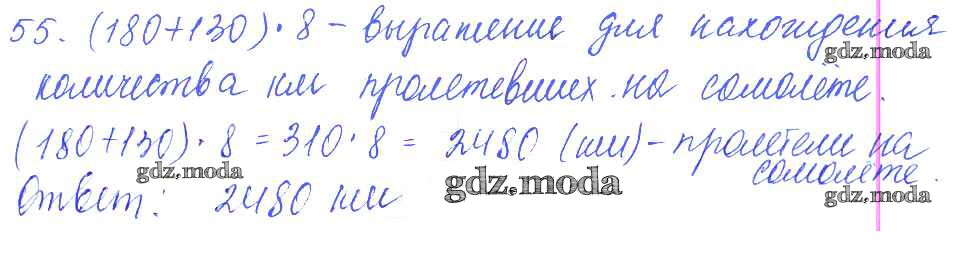 55. (180+130)·8 – выражение для нахождения
gdz.moda
количества км пролетевших на самолёте.
(180+130)·8 = 310·8 = 2480 (км) – пролетели на
самолёте.
gdz.moda
gdz.moda
gdz.moda
Ответ: 2480 км